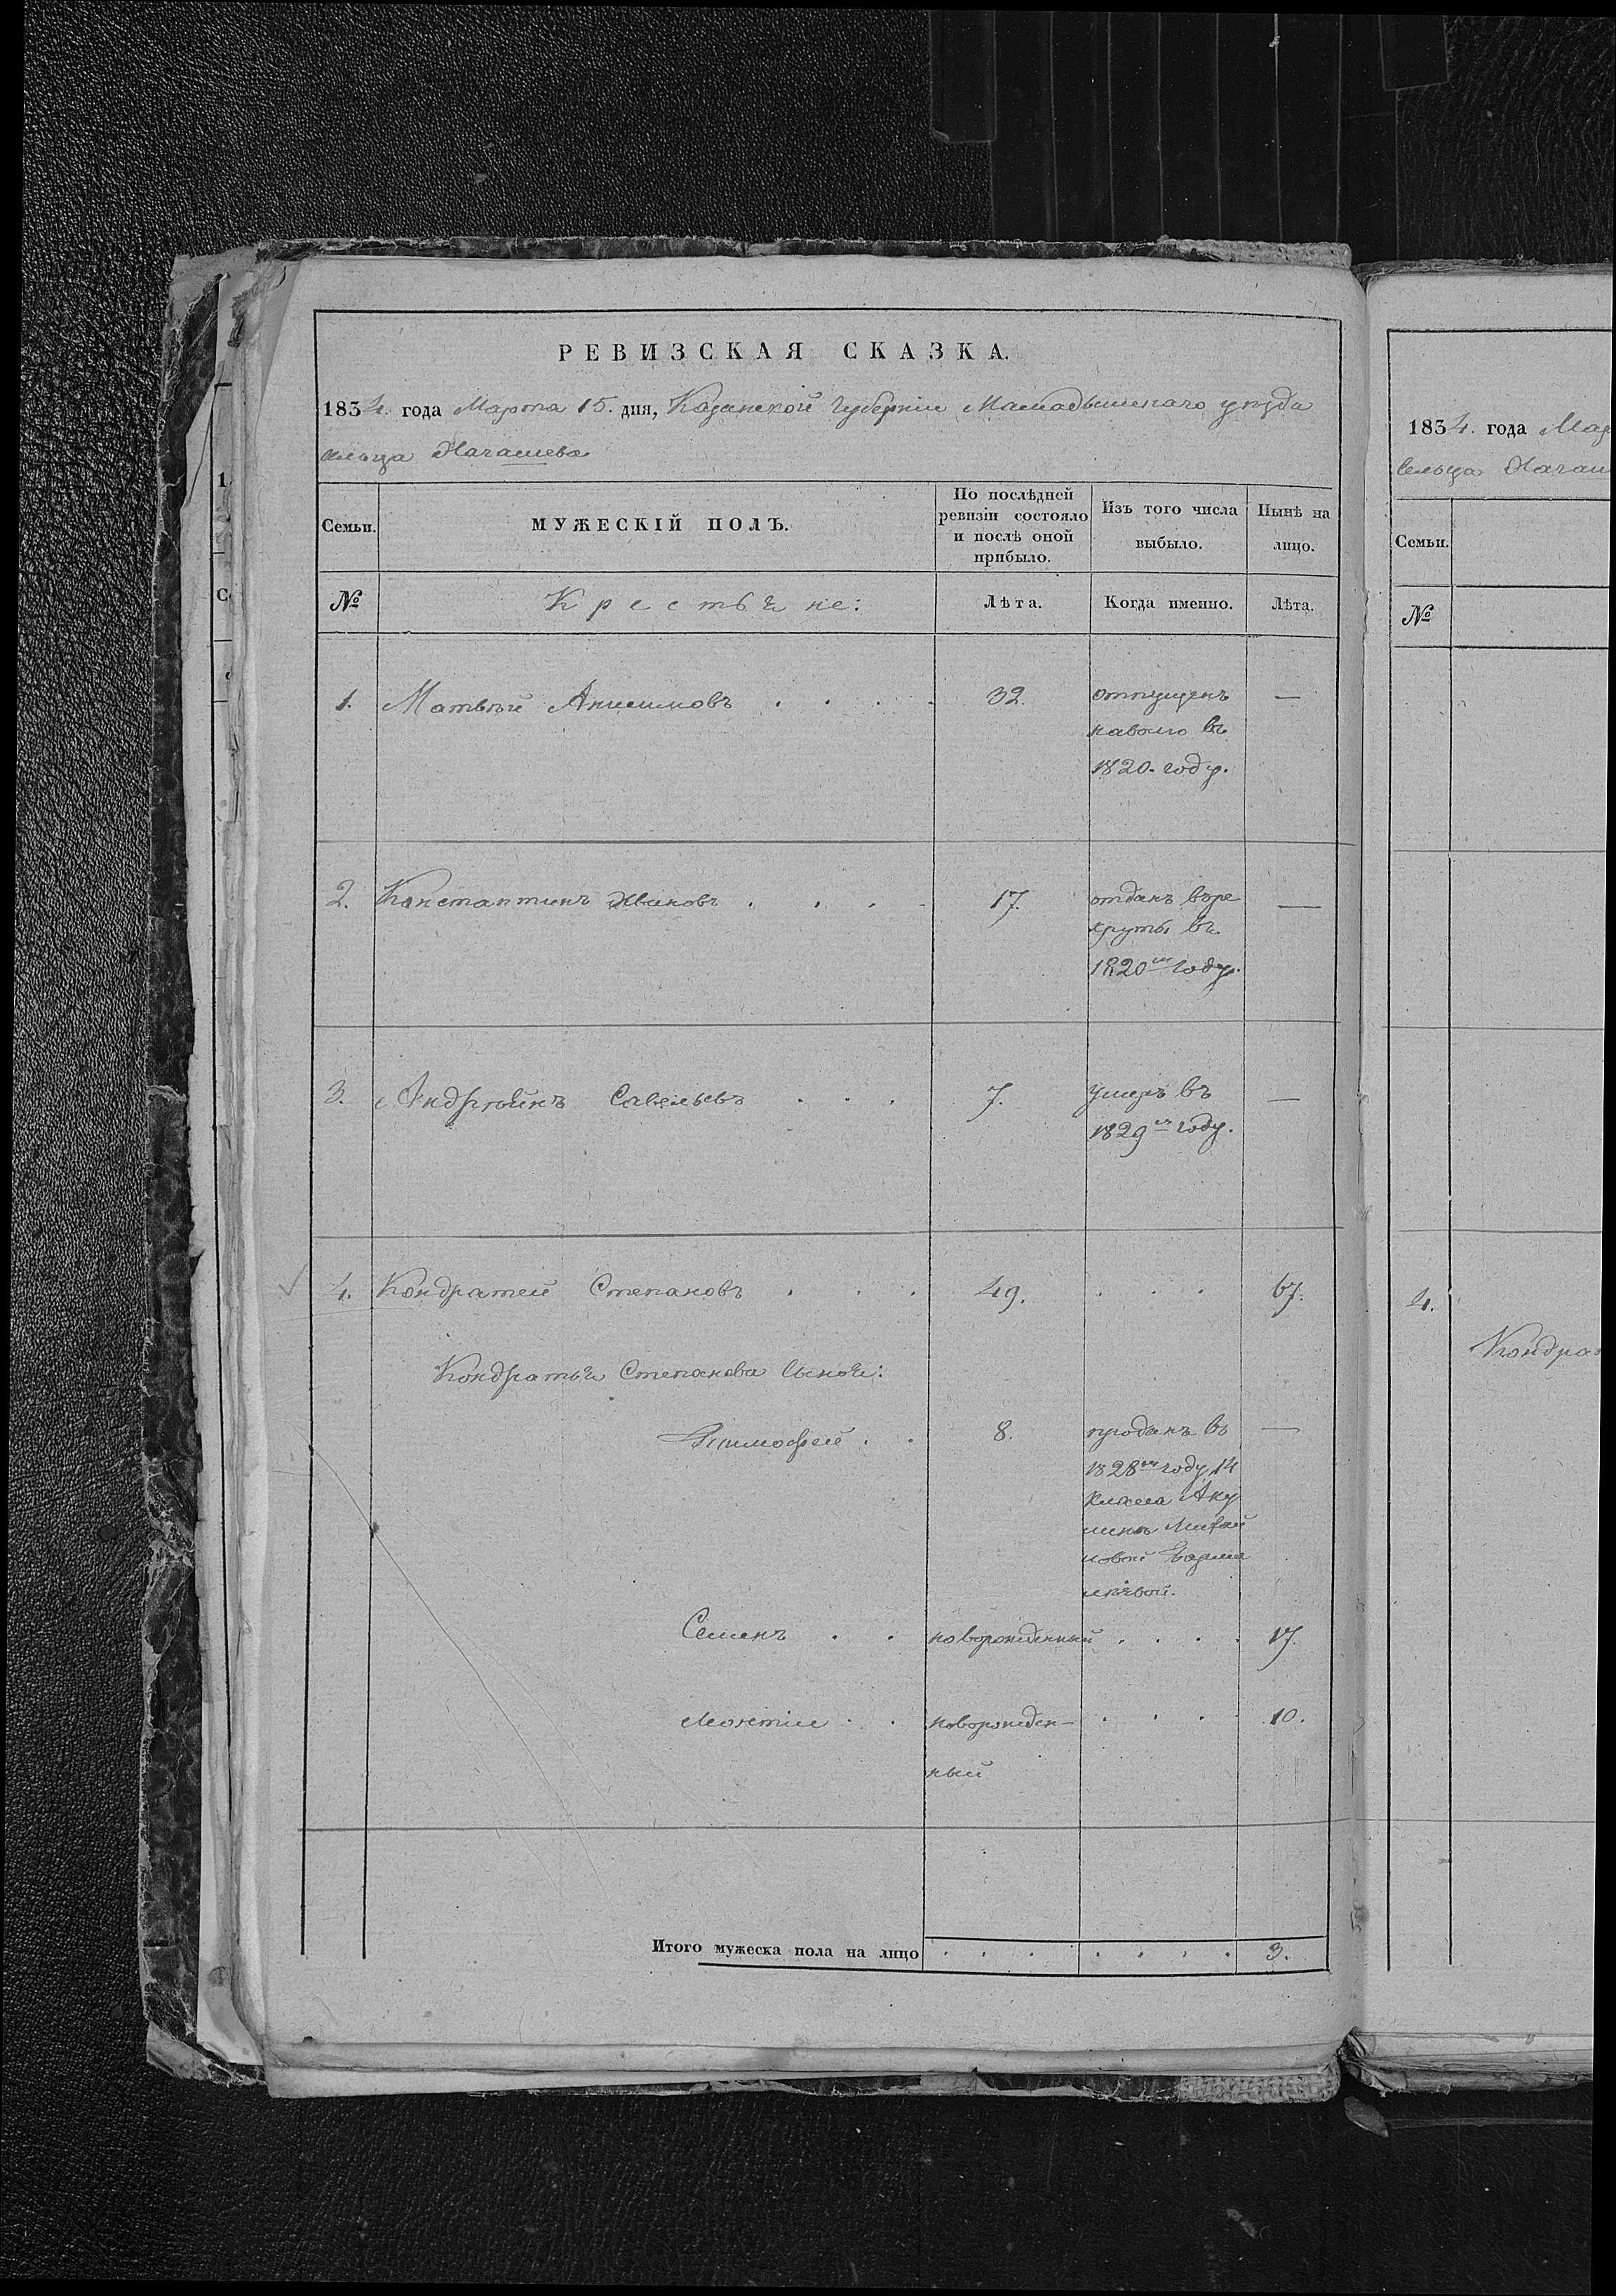 РЕВИЗСКАЯ СКАЗКА.
1834. года Марта 15. дня, Казанской Губерніи Мамадышскаго уезда
сельца
Семьи.
МУЖЕСКІЙ ПОЛЪ.
По послѣдней
ревизіи состояло
и послѣ оной
прибыло.
Изъ того числа
выбыло.
Нынѣ на
лицо.
№
Крестьяне:
Лѣта.
Когда именно.
Лѣта.
1. Матвѣй Анисимовъ . . . . 32. отпущенъ —
наволю въ
1820. году.
2. Константинъ Ивановъ . . . . 17. отданъ вьре —
круты въ
1820м году.
3. Савельевъ . . . 7. умеръ въ —
1829м году.
4. Кондратей Степановъ . . . 49. . . . 67.
Кондратья Степанова Сыновья:
Тимофей . . 8. проданъ въ —
1828м году 14
класса Аку
линѣ Михай
ловой
Семенъ . . новорожденный . . . . 17.
. . новорожден- . . . . 10.
ный
Итого мужеска пола на лицо . . . . . . . . 3.
1834. года Мар
сельца
Семьи.
№
4.
Кондрат